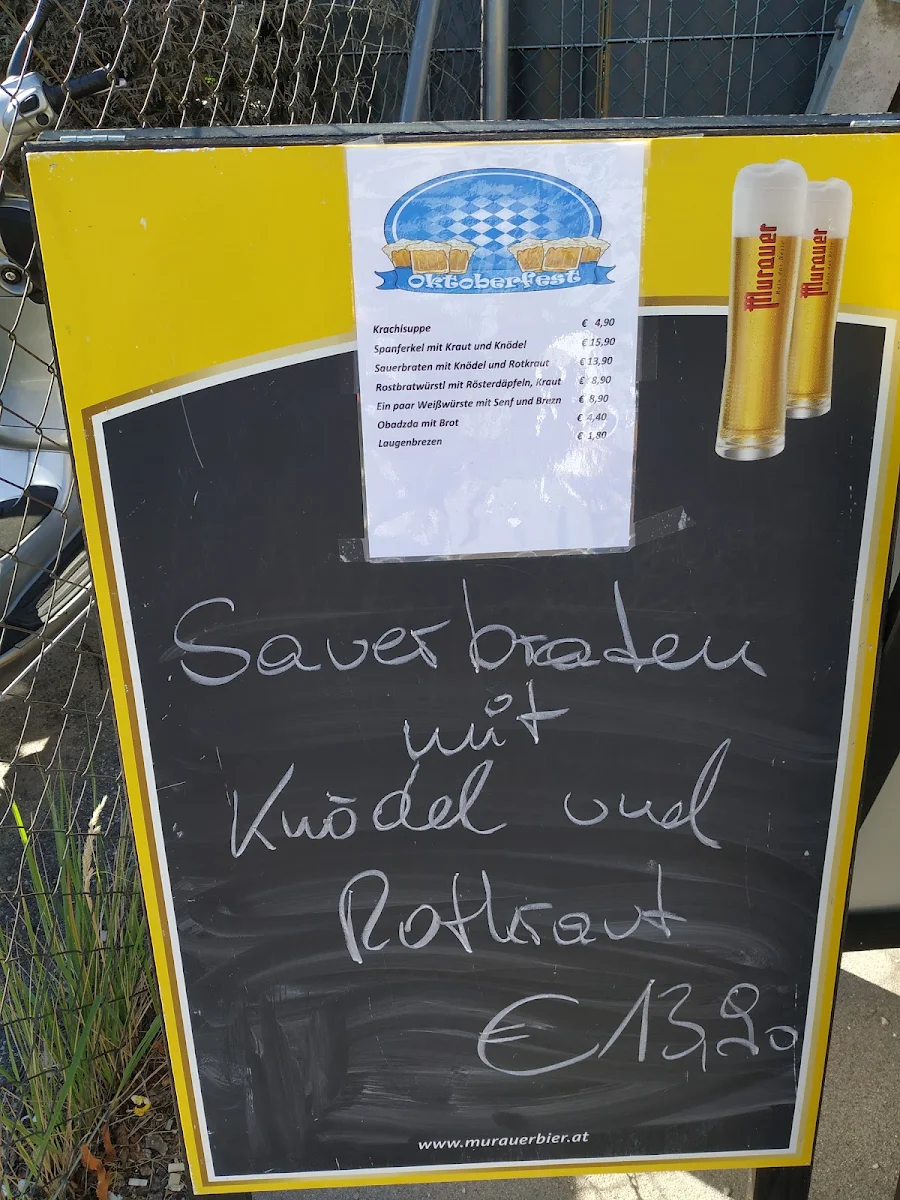 Oktoberfest
Krachisuppe € 4,90
Spanferkel mit Kraut und Knödel € 15,90
Sauerbraten mit Knödel und Rotkraut € 13,90
Rostbratwürstl mit Rösterdäpfeln, Kraut € 8,90
Ein paar Weißwürste mit Senf und Brezn € 8,90
Obadzda mit Brot € 4,40
Laugenbrezen € 1,80
Murauer
Murauer
Sauerbraten
mit
Knödel und
Rotkraut
€ 13,90
www.murauerbier.at